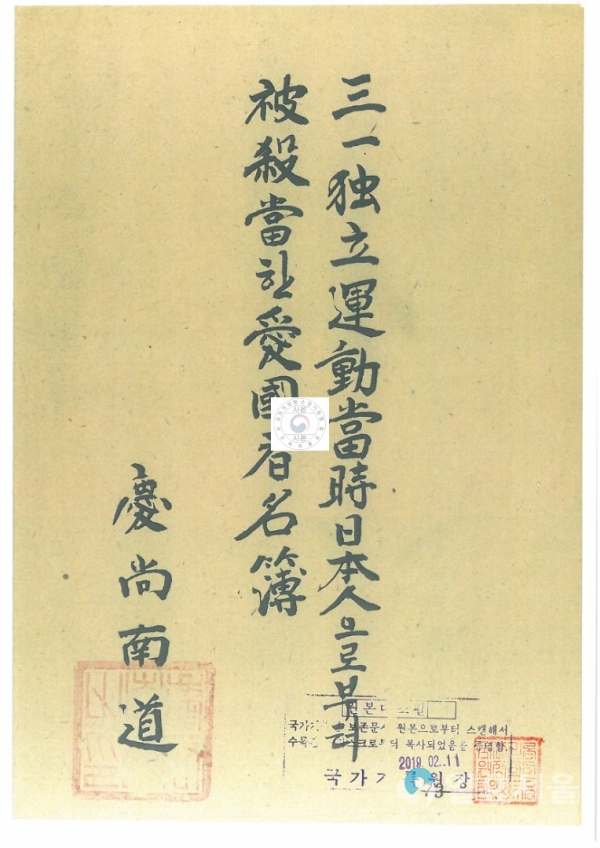 三一独立運動當時日本人으로부터
被殺當한愛國者名簿
慶尚南道
사본
사본
원본대조필
보존문서 원본으로부터 스캔해서
복사되었음을 증명함
2019.02.11
국가기록원장